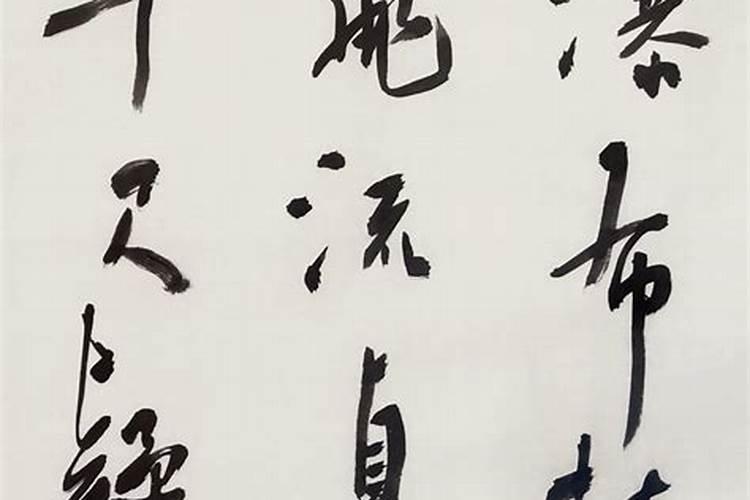 瀑布
飛流直
千尺疑